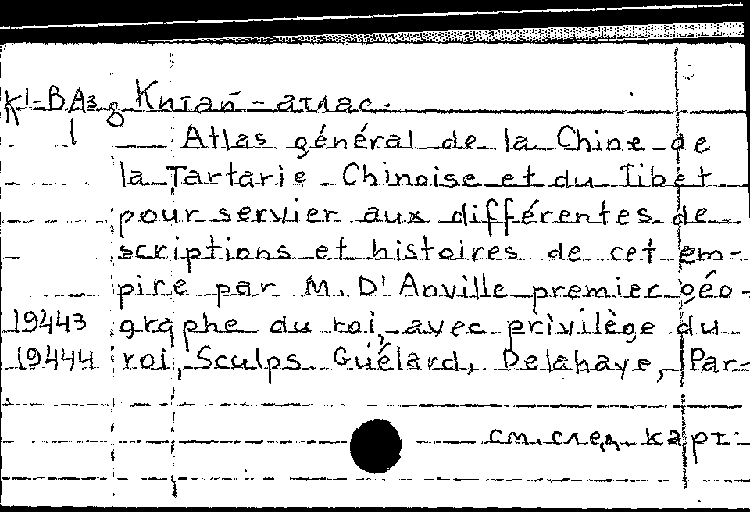 К1-ВАз 8 Китай - атлас.
1 Atlas général de la Chine de
la Tartarie Chinoise et du Tibet
pour servier aux différentes de-
scriptions et histoires de cet em-
pire par M. D'Anville premier géo-
19443 graphe du roi, avec privilège du
19444 roi, Sculps. Guélard, Delahaye, Par-
см. след. карт.